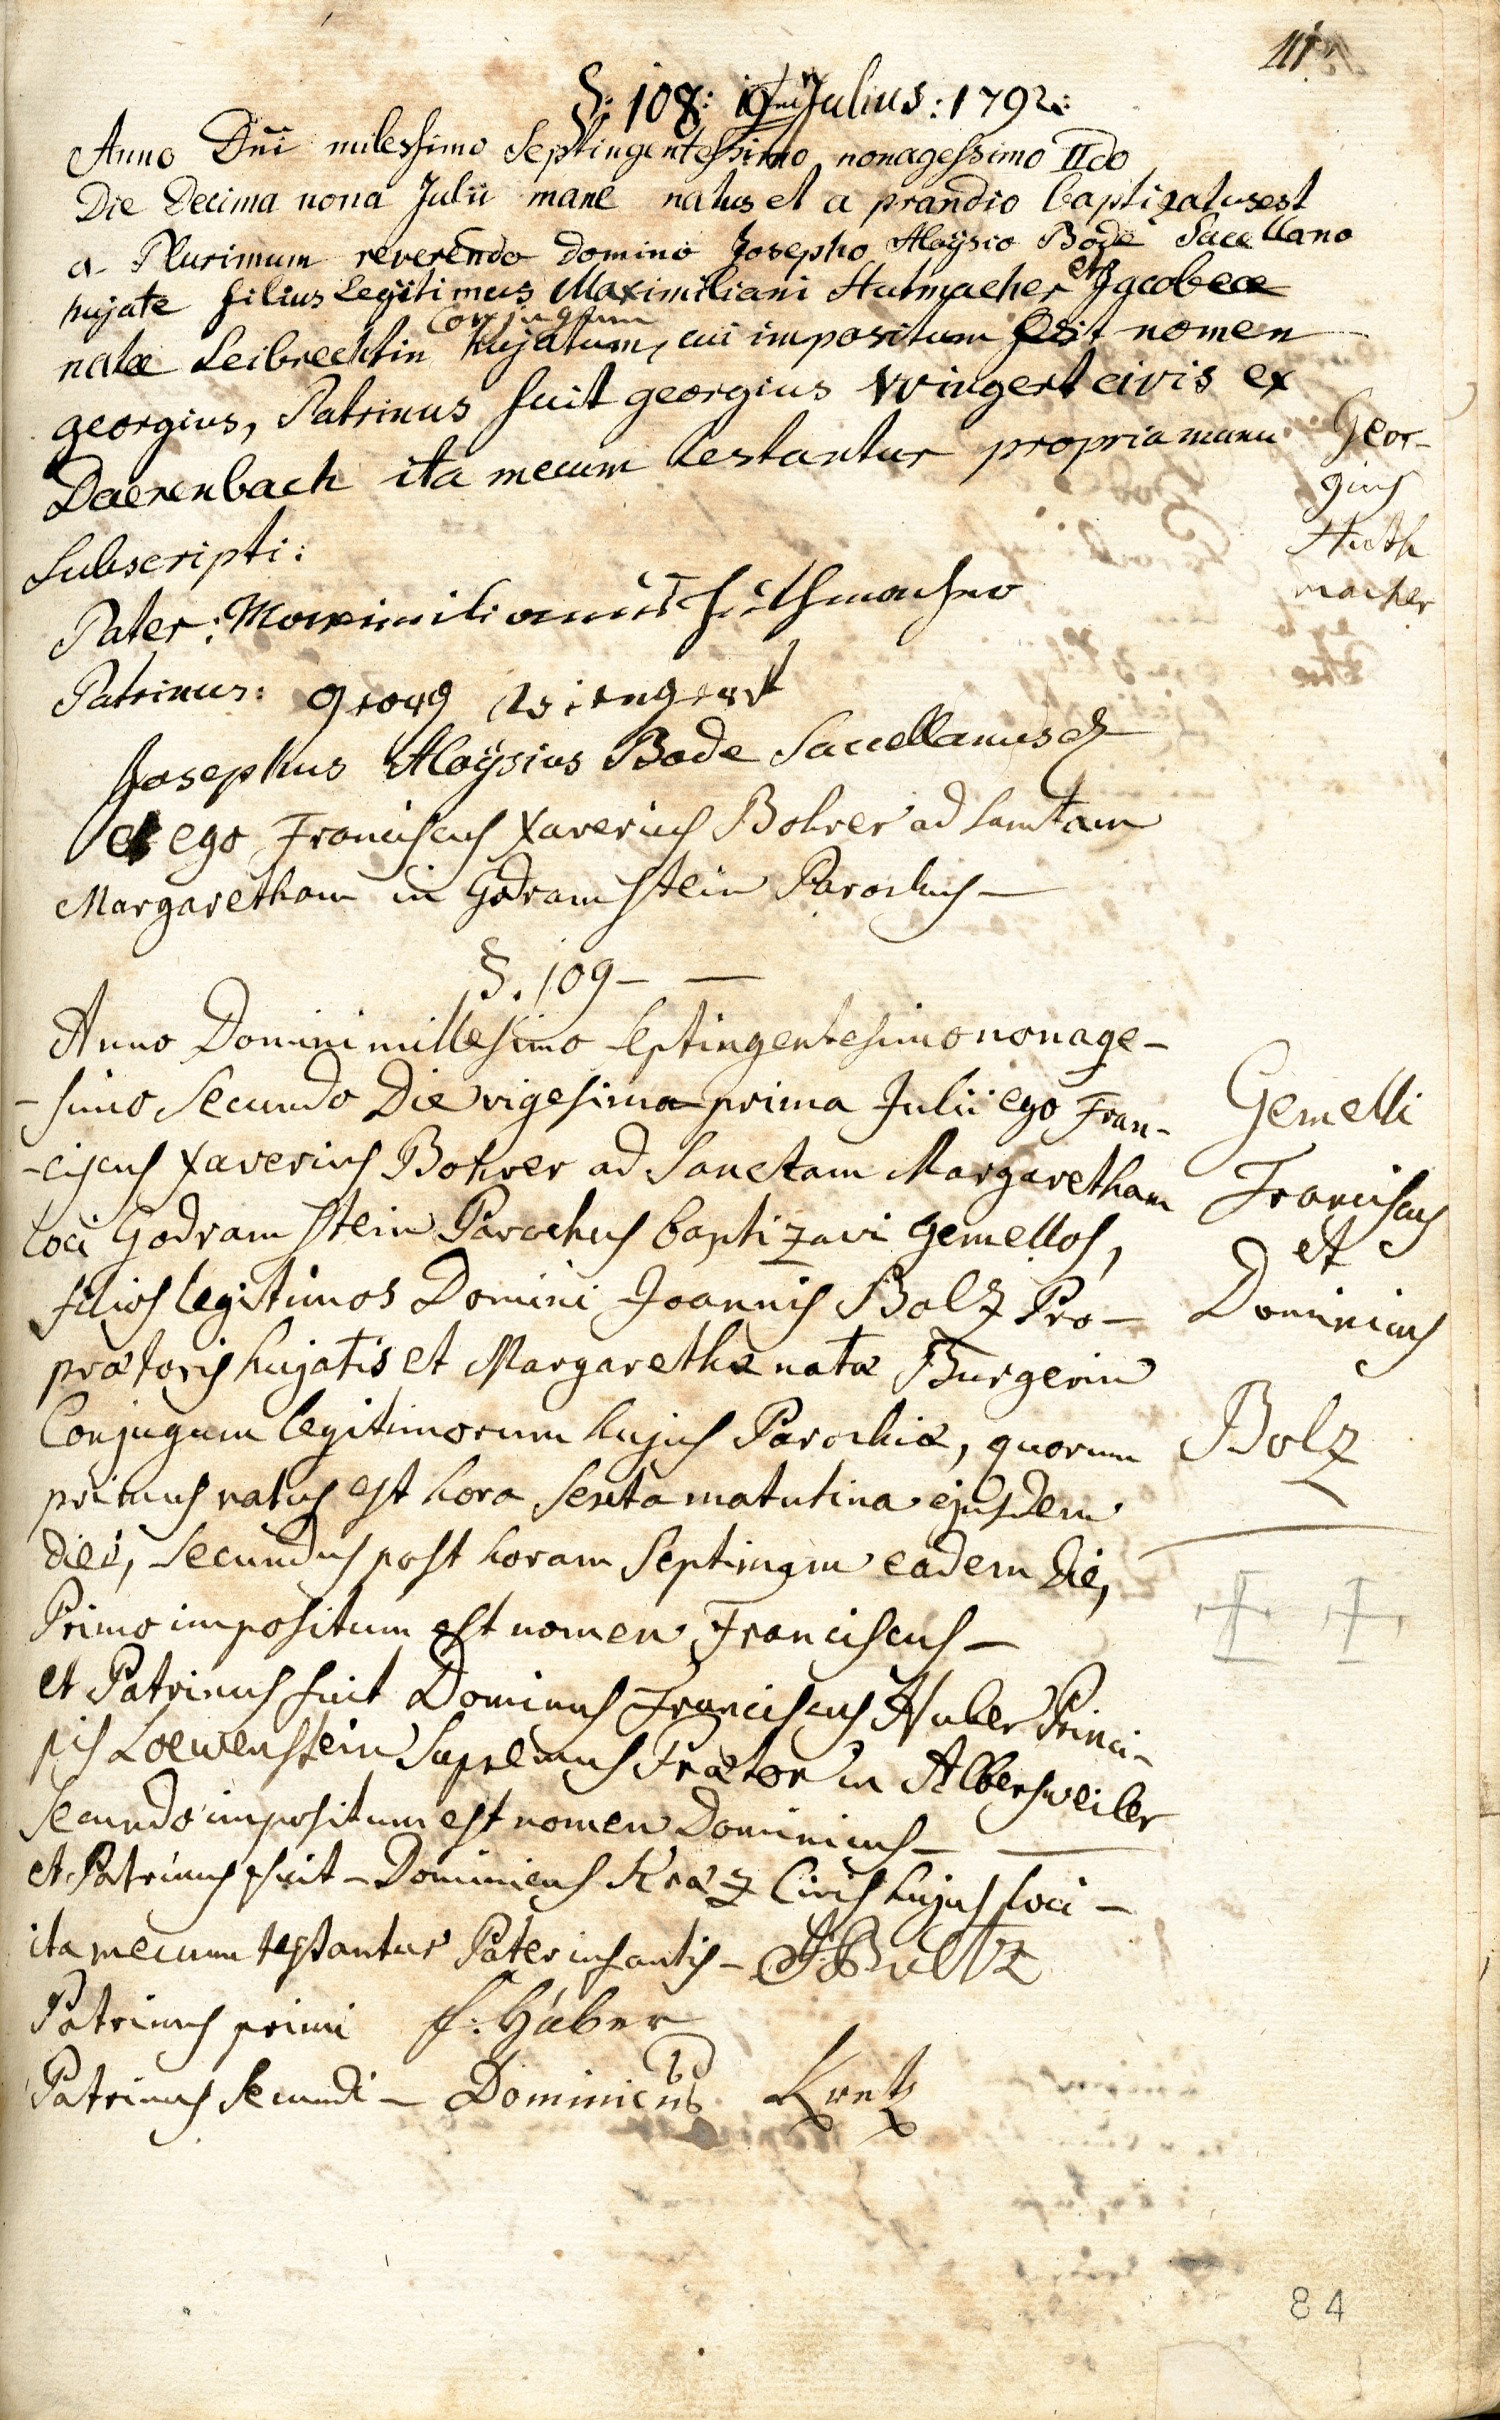 111
§: 108: 19na Julius: 1792:
Anno Dñi milessimo Septingentessimo nonagessimo IIdo
Die Decima nona Julii mane natus et a prandio baptizatus est
a Plurimum reverendo Domino Josepho Aloÿsio Bode Sacellano
hujate filius Legitimus Maximiliani Hutmacher et Jacobeae
natae Leibrechtin Conjugum hujatum, cui impositum est nomen
georgius, Patrinus fuit georgius Wingert civis ex
Daerenbach ita mecum testantur propria manu
Subscripti:
Geor-
gius
Huth
macher
Pater: Maximilianus Huthmacher
Patrinus: georg Wiengert
Josephus Aloÿsius Bode Sacellanus
et ego Franciscus Xaverius Bohrer ad Sanctam
Margaretham in Godramstein Parochus —
§. 109 — —
Anno Domini millesimo septingentesimo nonage-
-simo Secundo Die vigesima prima Julii ego Fran-
-ciscus Xaverius Bohrer ad Sanctam Margaretham
loci Godramstein Parochus baptizavi gemellos,
filios legitimos Domini Joannis Bolz Pro-
praetoris hujatis et Margarethae natae Burgerin
Conjugum legitimorum hujus Parochiae, quorum
primus natus est hora sexta matutina ejusdem
diei, Secundus post horam Septimam eadem die,
Primo impositum est nomen Franciscus —
et Patrinus fuit Dominus Franciscus Huber Princi-
pis Loewenstein Supremus Praetor in Albersweiler
Secundo impositum est nomen Dominicus —
et Patrinus fuit — Dominicus Kraez Civis hujus loci —
ita mecum testantur Pater infantis — J Boltz
Patrinus primi f: Huber
Patrinus Secundi — Dominicus Kretz
Gemelli
Franciscus
et
Dominicus
Bolz
84